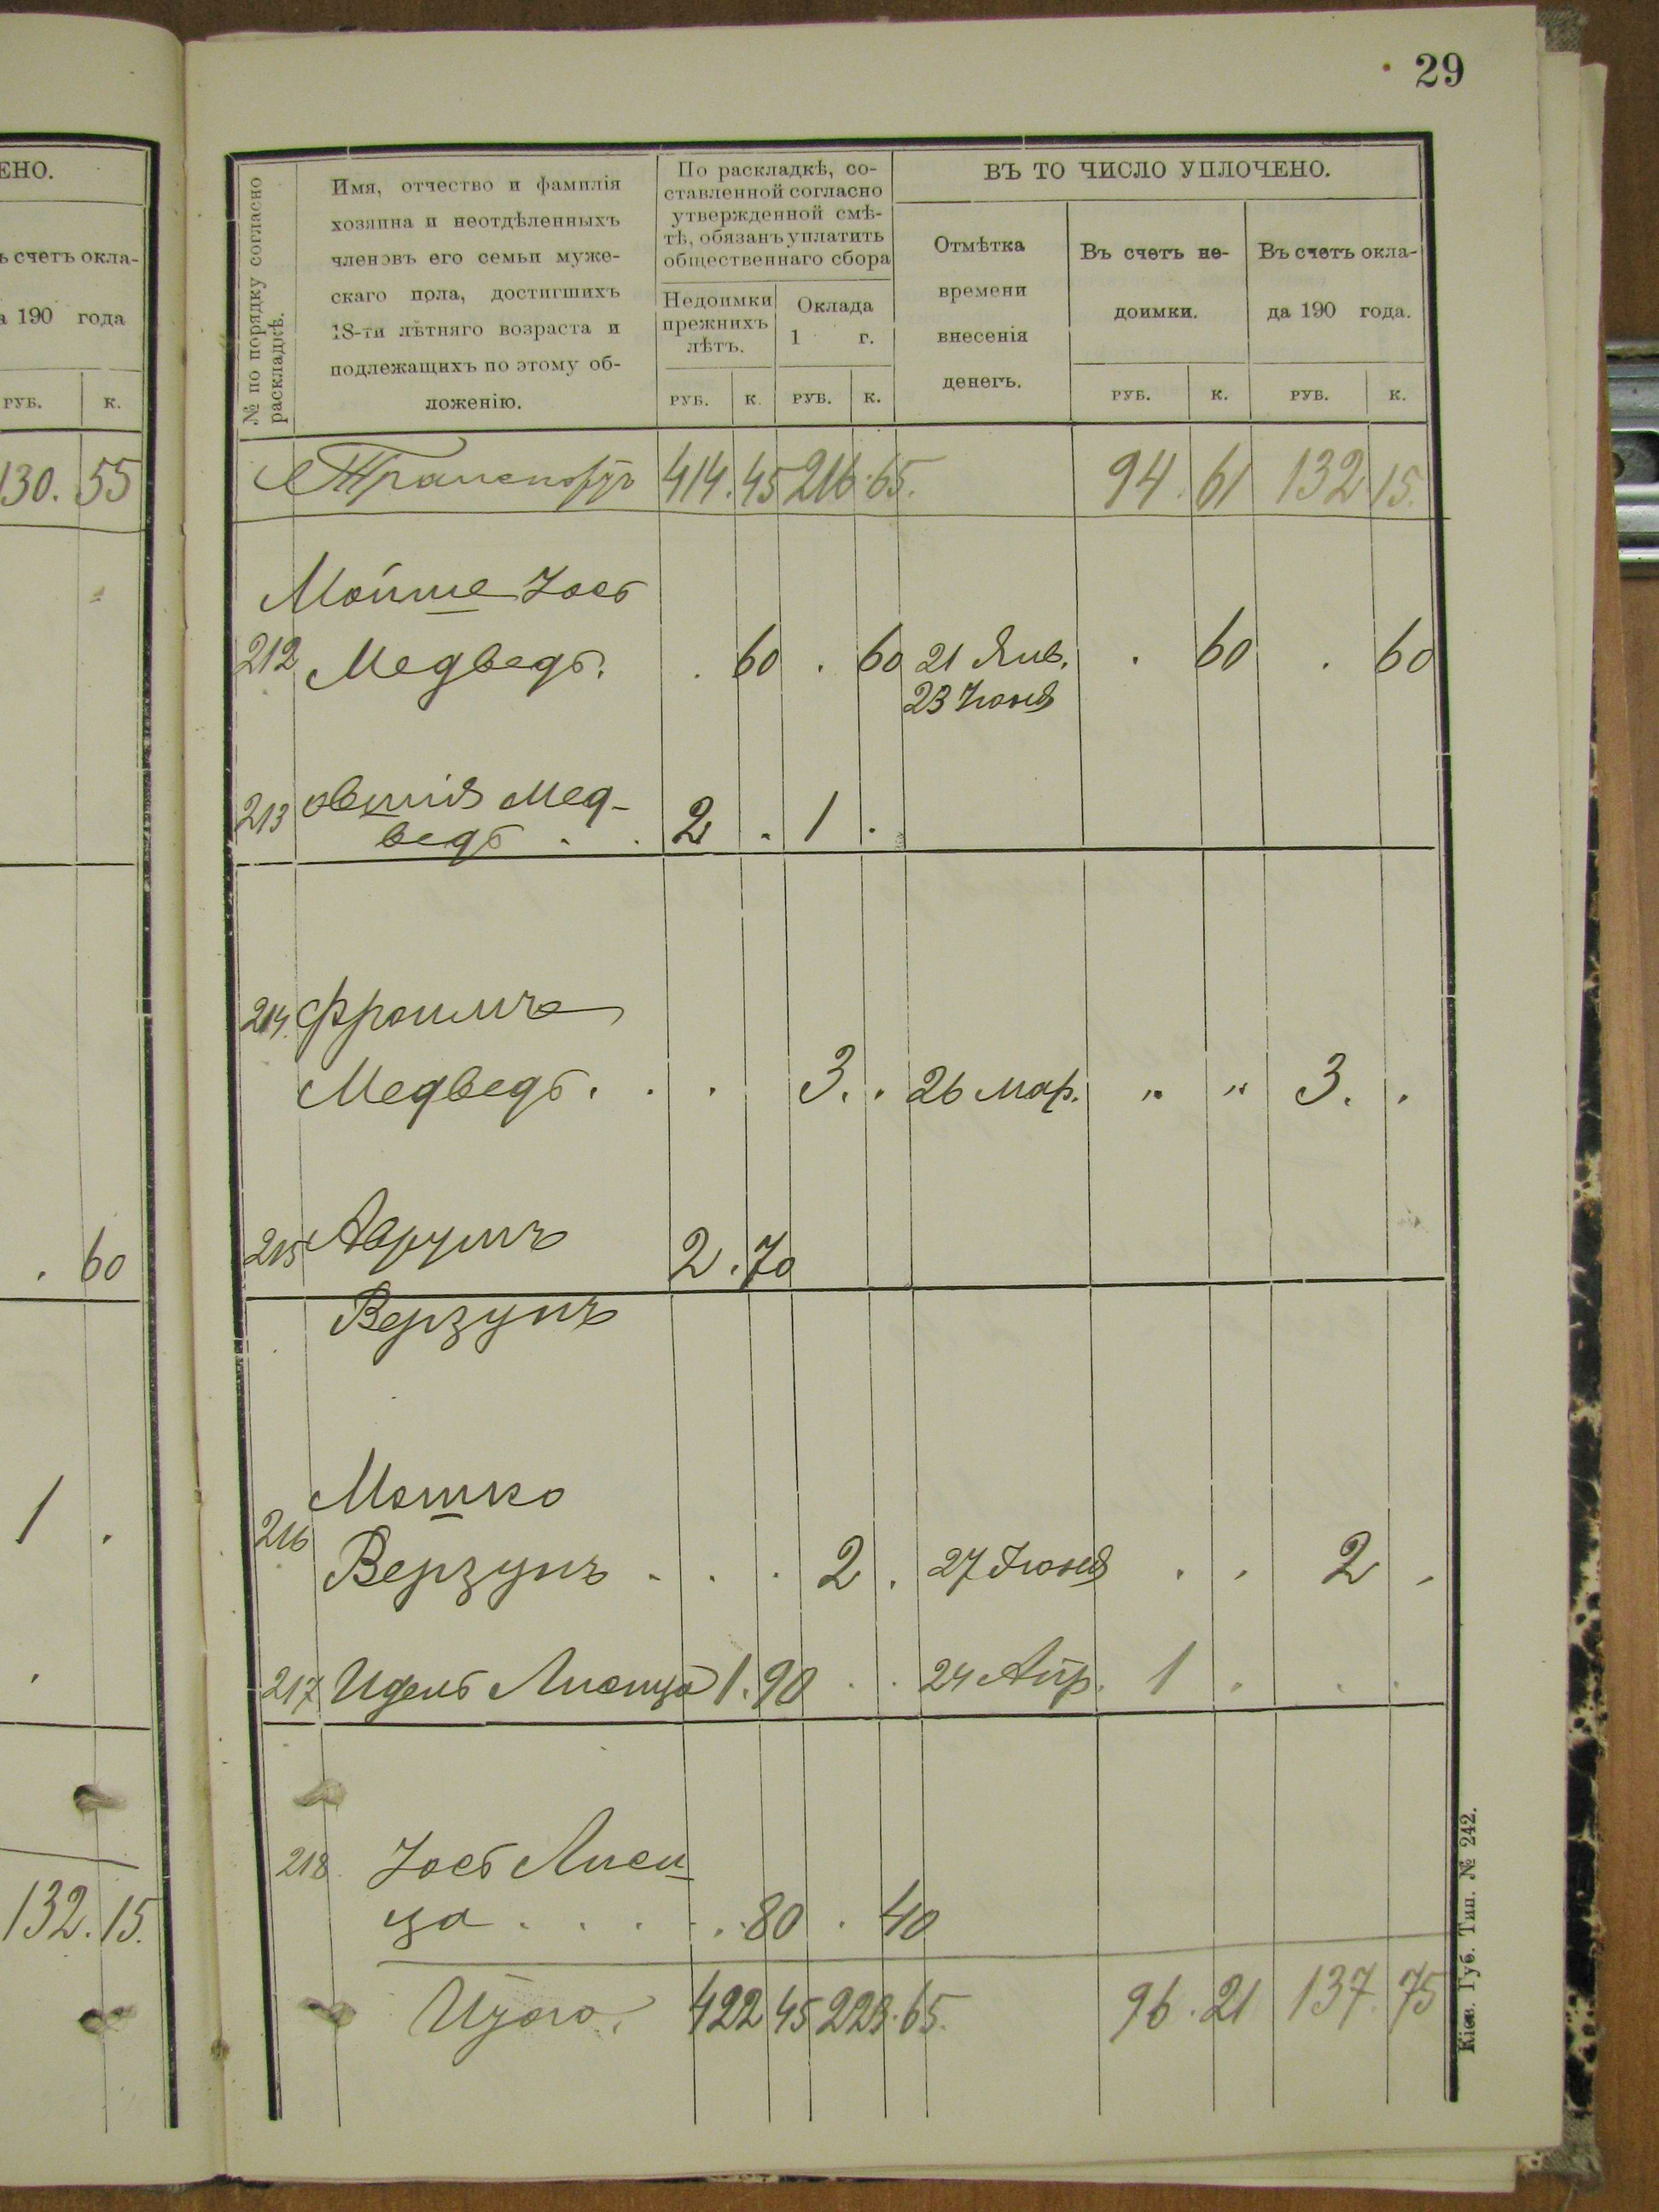 29
ЕНО.
ъ счетъ окла-
а 190 года
РУБ. К.
130. 55
. 60
1 .
132. 15.
№ по порядку согласно
раскладкѣ.
Имя, отчество и фамилія
хозяина и неотдѣленныхъ
членовъ его семьи муже-
скаго пола, достигшихъ
18-ти лѣтняго возраста и
подлежащихъ по этому об-
ложенію.
По раскладкѣ, со-
ставленной согласно
утвержденной смѣ-
тѣ, обязанъ уплатить
общественнаго сбора
Недоимки
прежнихъ
лѣтъ.
Оклада
1 г.
РУБ. К. РУБ. К.
ВЪ ТО ЧИСЛО УПЛОЧЕНО.
Отмѣтка
времени
внесенія
денегъ.
Въ счетъ не-
доимки.
РУБ. К.
Въ счетъ окла-
да 190 года.
РУБ. К.
Транспортъ 414. 45 216. 65. 94. 61 132 15.
Мойше Іось
212 Медведь. . 60 . 60 21 Янв. . 60 . 60
23 Іюня
213 Овшія Мед-
ведь . . 2 . 1 .
214. Фроимъ
Медведь. . . 3. . 26 Мар. " " 3. .
215 Аврумъ 2. 70
Верзунъ
Мошко
216 Верзунъ . . . 2 . 27 Іюня . . 2 .
217 Идель Лисица 1. 90 . . 24 Апр. 1 . . .
218 Іось Лиси-
ца . . . . . 80 . 40
Итого. 422 45 223. 65. 96. 21 137. 75
Кіев. Губ. Тип. № 242.